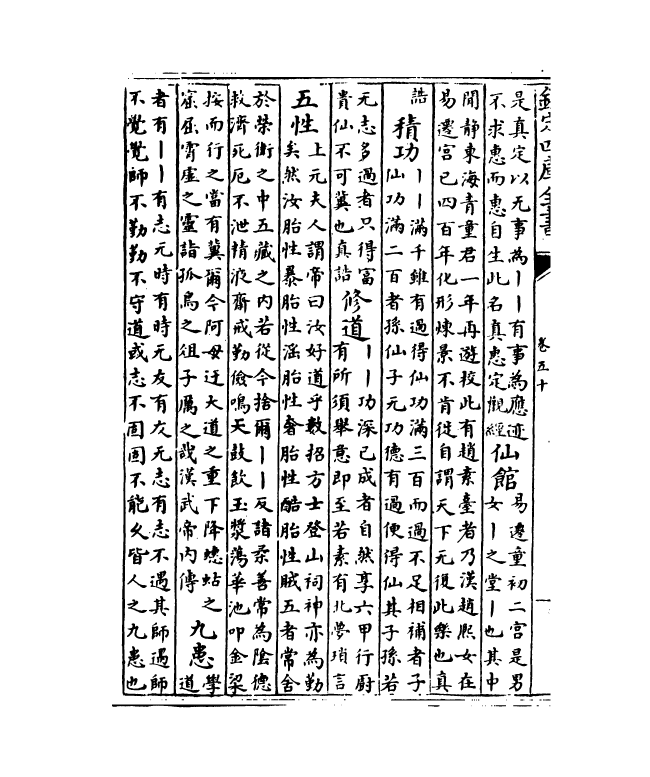 欽定四庫全書
卷五十
是真定以无事為丨丨有事為應迹
不求惠而惠自生此名真惠定觀經
仙館
易遷童初二宮是男
女丨之堂丨也其中
聞靜東海青童君一年再遊校此有趙素臺者乃漢趙熙女在
易遷宮已四百年化形煉景不肯從自謂天下无復此樂也真
誥
積功
丨丨滿千雖有過得仙功滿三百而過不足相補者子
仙功滿二百者孫仙子元功德有過便得仙其子孫若
元志多過者只得富
貴仙不可冀也真誥
修道
丨丨功深已成者自然享六甲行廚
有所須舉意即至若素有北夢瑣言
五性
上元夫人謂帝曰汝好道乎數招方士登山祠神亦為勤
矣然汝胎性暴胎性淫胎性奢胎性酷胎性賊五者常舍
於榮衛之中五藏之內若從今捨爾丨丨反諸柔善常為陰德
救濟死厄不泄精液齋戒勤儉鳴天鼓飲玉漿蕩華池叩金梁
按而行之當有冀爾今阿母迂大道之重下降蟪蛄之
窟屈霄虛之靈詣孤鳥之俎子厲之哉漢武帝內傳
九患
學
道
者有丨丨有志元時有時元友有友无志有志不遇其師遇師
不覺覺師不勤勤不守道或志不固固不能久皆人之九患也